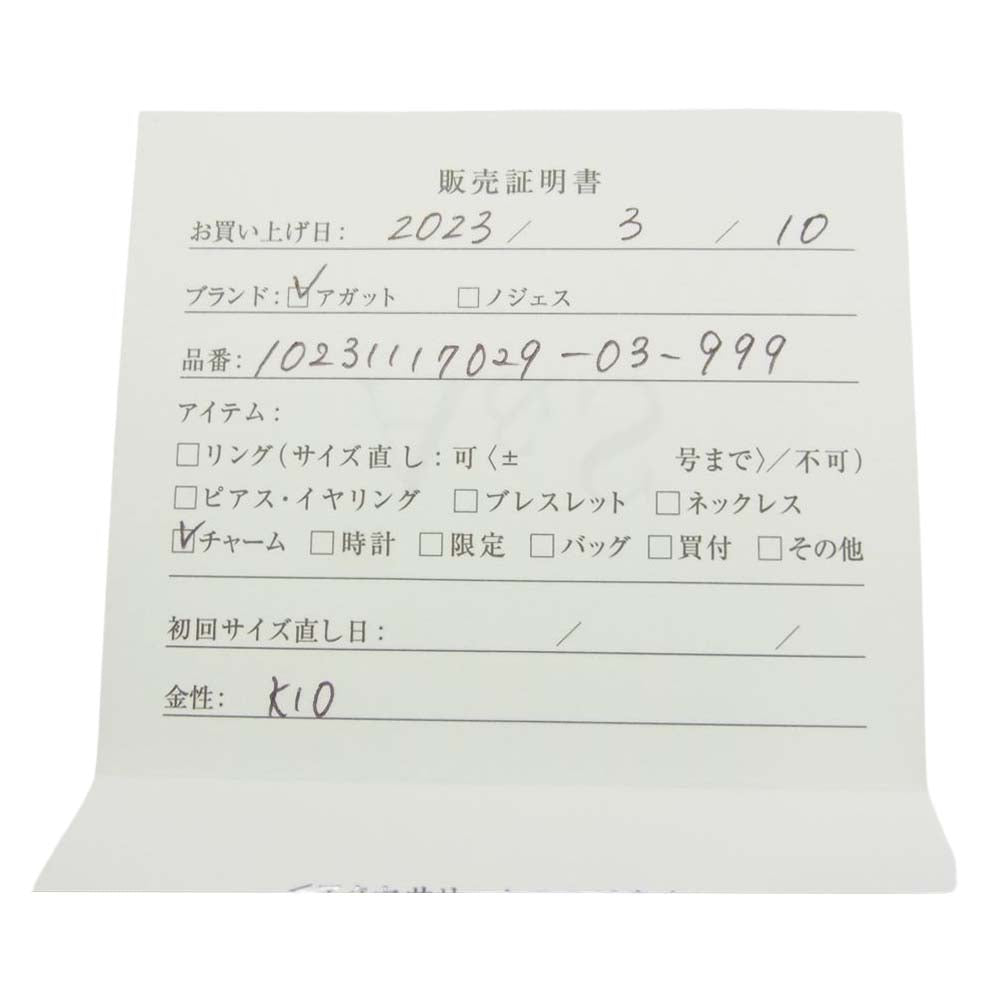 販売証明書
お買い上げ日: 2023 / 3 / 10
ブランド: ☑アガット □ノジェス
品番: 10231117029-03-999
アイテム:
□リング(サイズ直し:可〈± 号まで〉/不可)
□ピアス・イヤリング □ブレスレット □ネックレス
☑チャーム □時計 □限定 □バッグ □買付 □その他
初回サイズ直し日: / /
金性: K10